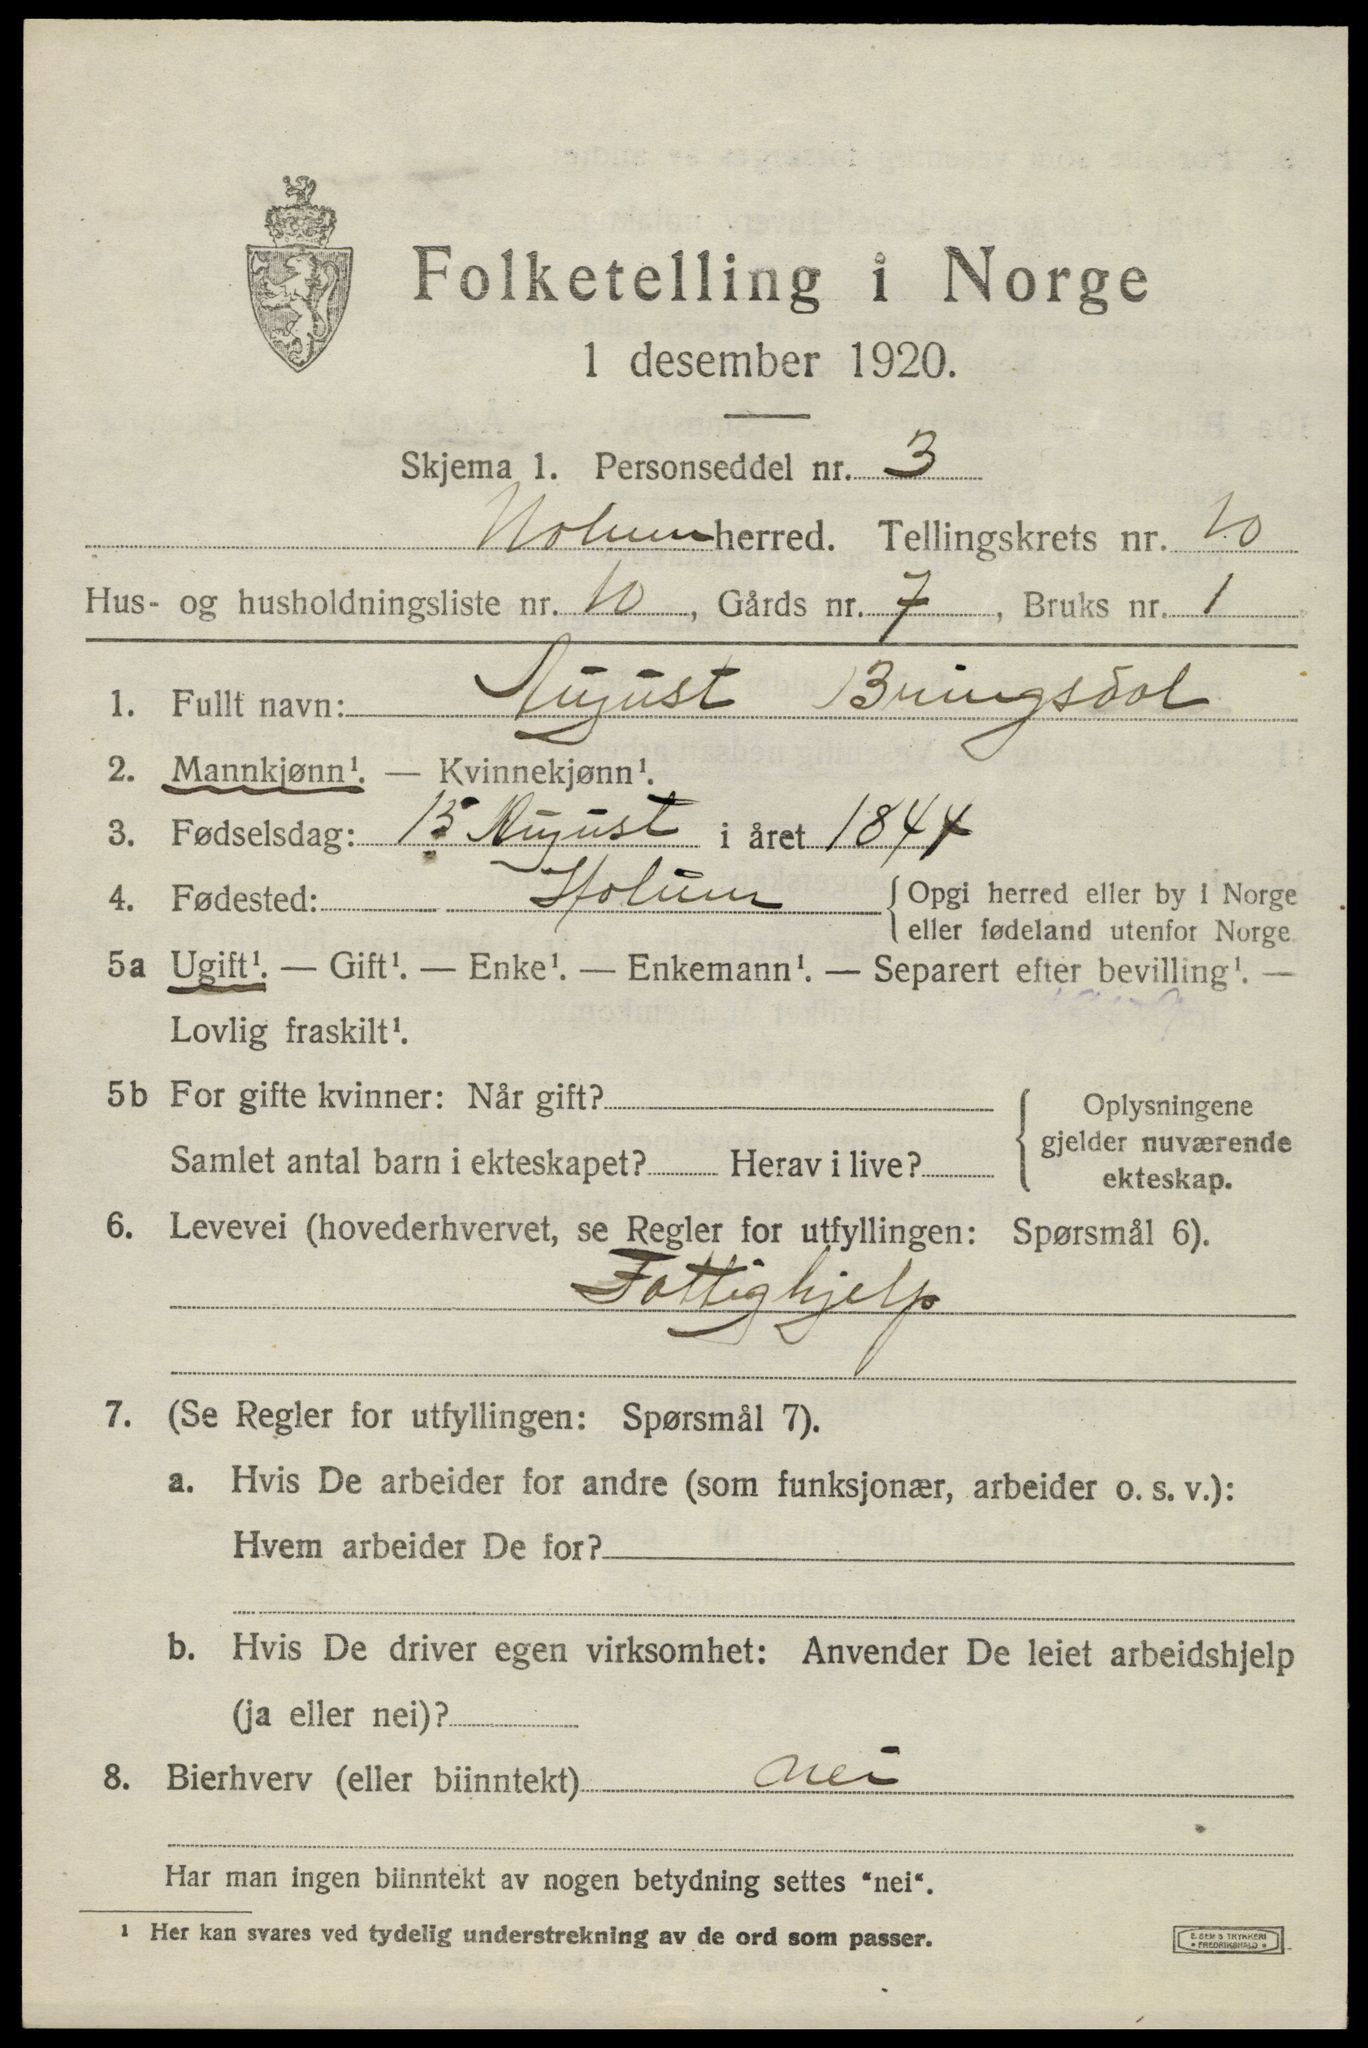 Folketelling i Norge
1 desember 1920.
Skjema 1. Personseddel nr. 3
Holum herred. Tellingskrets nr. 10
Hus- og husholdningsliste nr. 10, Gårds nr. 7, Bruks nr. 1
1. Fullt navn: August Bringsdal
2. Mannkjønn¹. — Kvinnekjønn¹.
3. Fødselsdag: 15 August i året 1844
4. Fødested: Holum { Opgi herred eller by i Norge
eller fødeland utenfor Norge
5a Ugift¹. — Gift¹. — Enke¹. — Enkemann¹. — Separert efter bevilling¹. —
Lovlig fraskilt¹.
5b For gifte kvinner: Når gift?
Samlet antal barn i ekteskapet? Herav i live?
{ Oplysningene
gjelder nuværende
ekteskap.
6. Levevei (hovederhvervet, se Regler for utfyllingen: Spørsmål 6).
Fattighjelp
7. (Se Regler for utfyllingen: Spørsmål 7).
a. Hvis De arbeider for andre (som funksjonær, arbeider o. s. v.):
Hvem arbeider De for?
b. Hvis De driver egen virksomhet: Anvender De leiet arbeidshjelp
(ja eller nei)?
8. Bierhverv (eller biinntekt) nei
Har man ingen biinntekt av nogen betydning settes "nei".
1 Her kan svares ved tydelig understrekning av de ord som passer.
TRYKKERI
FREDRIKSHALD